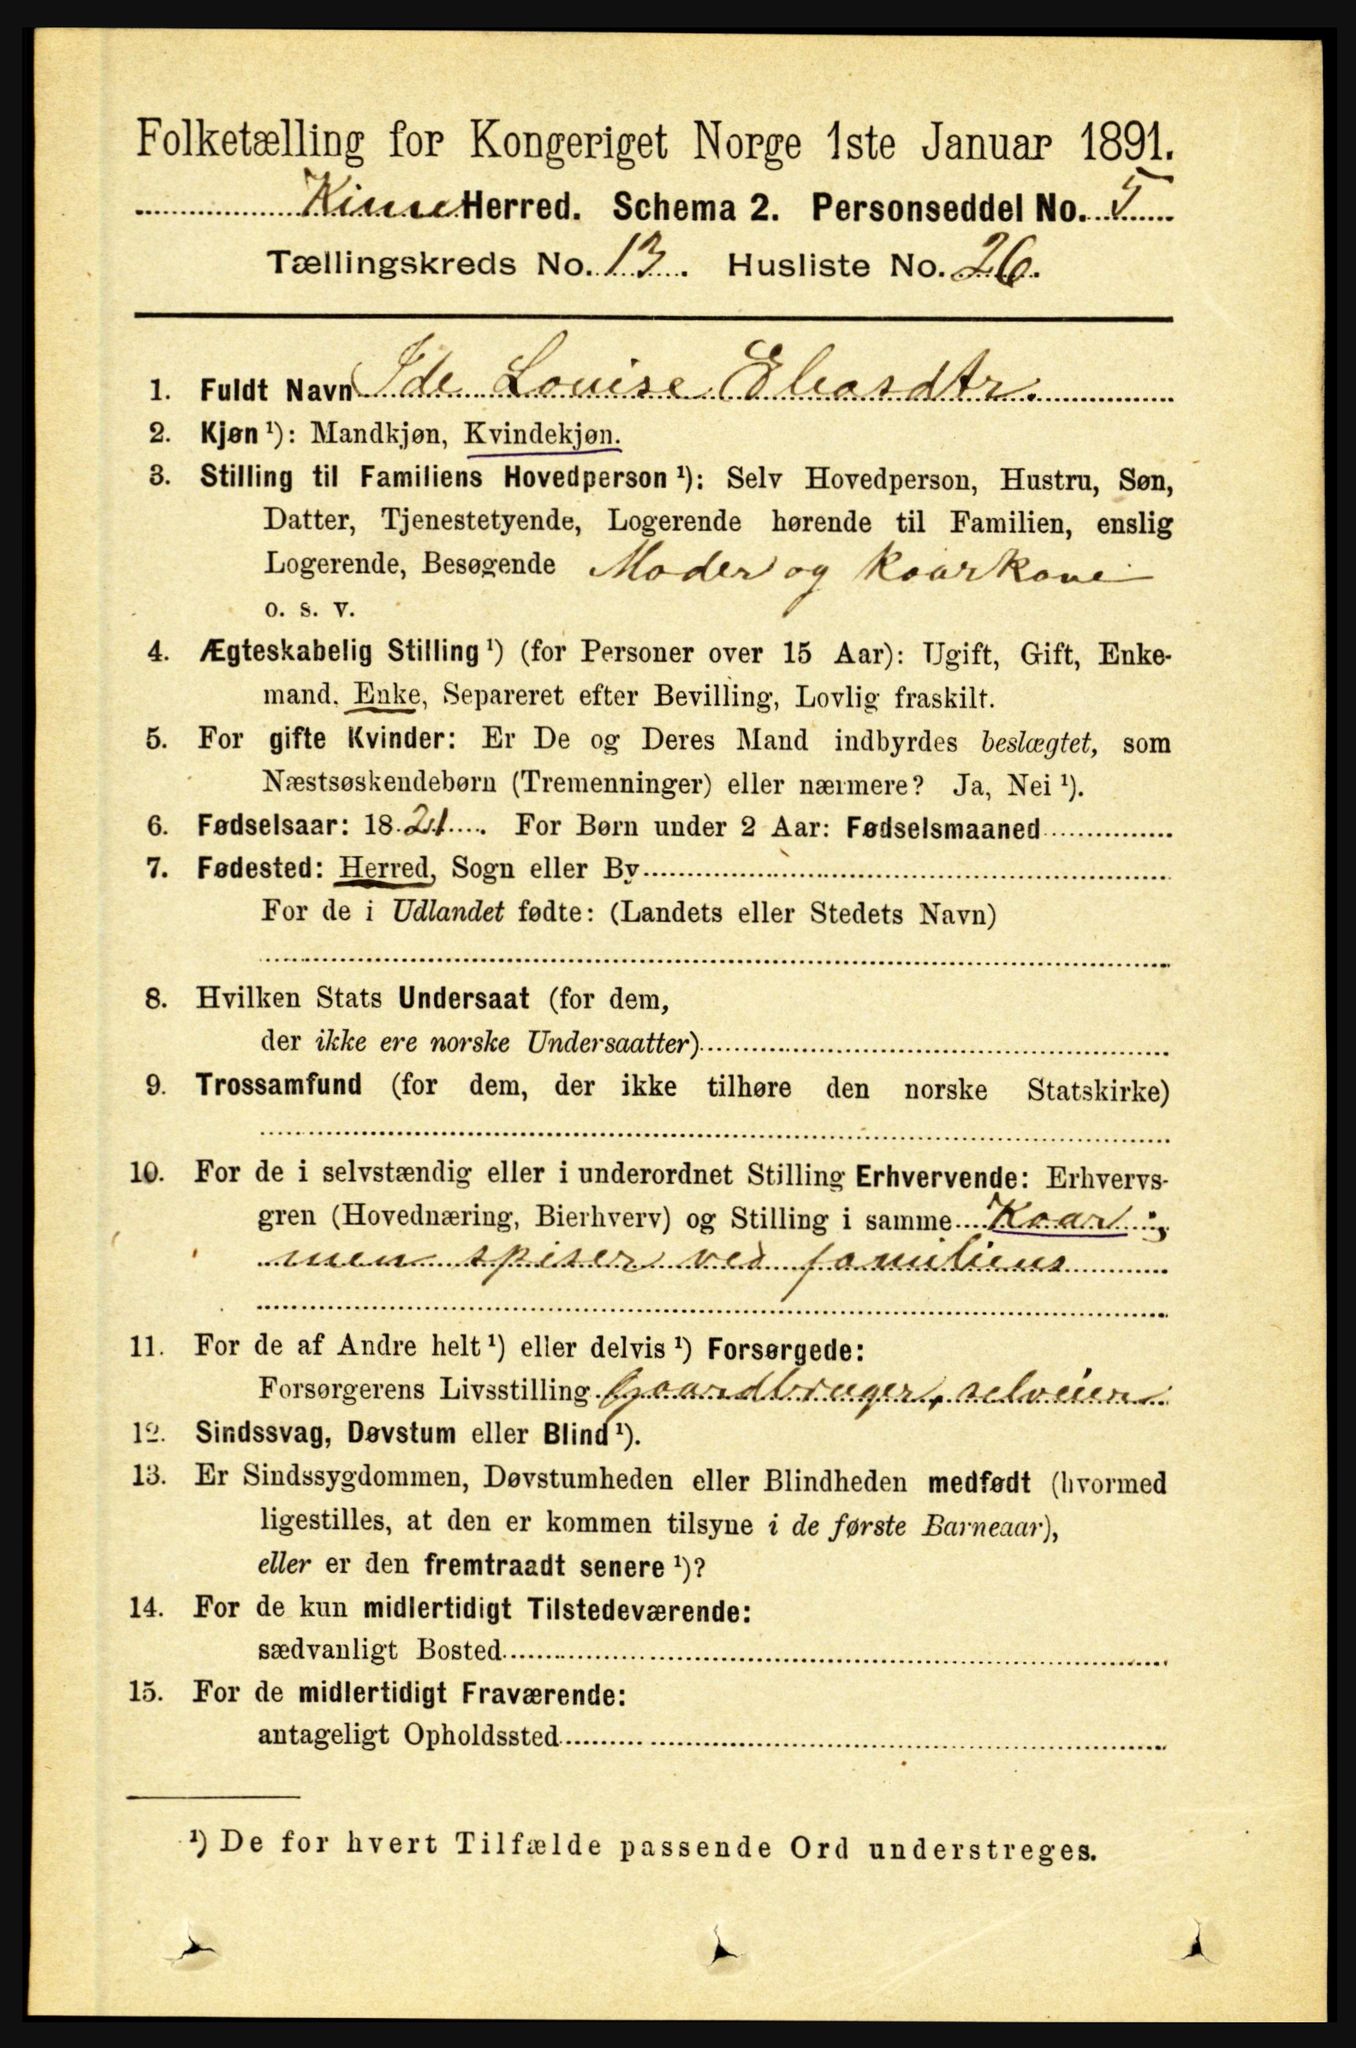 Folketælling for Kongeriget Norge 1ste Januar 1891.
Kinn Herred. Schema 2. Personseddel No. 5
Tællingskreds No. 13. Husliste No. 26.
1. Fuldt Navn Ide Louise Eliasdtr.
2. Kjøn ¹): Mandkjøn, Kvindekjøn.
3. Stilling til Familiens Hovedperson ¹): Selv Hovedperson, Hustru, Søn,
Datter, Tjenestetyende, Logerende hørende til Familien, enslig
Logerende, Besøgende Moder og Kaarkone
o. s. v.
4. Ægteskabelig Stilling ¹) (for Personer over 15 Aar): Ugift, Gift, Enke-
mand, Enke, Separeret efter Bevilling, Lovlig fraskilt.
5. For gifte Kvinder: Er De og Deres Mand indbyrdes beslægtet, som
Næstsøskendebørn (Tremenninger) eller nærmere? Ja, Nei ¹).
6. Fødselsaar: 1821. For Børn under 2 Aar: Fødselsmaaned
7. Fødested: Herred, Sogn eller By
For de i Udlandet fødte: (Landets eller Stedets Navn)
8. Hvilken Stats Undersaat (for dem,
der ikke ere norske Undersaatter)
9. Trossamfund (for dem, der ikke tilhøre den norske Statskirke)
10. For de i selvstændig eller i underordnet Stilling Erhvervende: Erhvervs-
gren (Hovednæring, Bierhverv) og Stilling i samme Kaar
men spiser ved familiens
11. For de af Andre helt ¹) eller delvis ¹) Forsørgede:
Forsørgerens Livsstilling Gaardbruger, selveier
12. Sindssvag, Døvstum eller Blind ¹).
13. Er Sindssygdommen, Døvstumheden eller Blindheden medfødt (hvormed
ligestilles, at den er kommen tilsyne i de første Barneaar),
eller er den fremtraadt senere ¹)?
14. For de kun midlertidigt Tilstedeværende:
sædvanligt Bosted
15. For de midlertidigt Fraværende:
antageligt Opholdssted
¹) De for hvert Tilfælde passende Ord understreges.